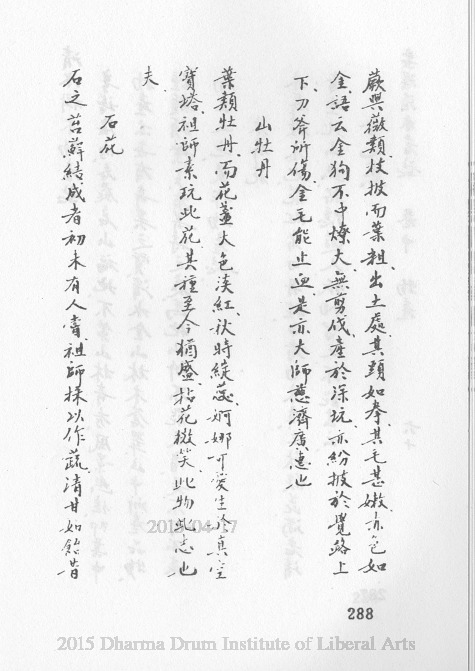 蕨與薇類枝披而葉粗、出土處其類如拳、其毛甚嫩、赤色如
金、語云金狗不中燎、大無剪伐、產於深坑、亦紛披於覺路上
下、刀斧所傷、金毛能止血、是亦大師慈濟廣惠也
山牡丹
葉類牡丹、而花蓋大色淡紅、秋時綻蕊、婀娜可愛、生於真空
寶塔、祖師素玩此花、其種至今猶盛、拈花微笑、此物此志也
夫、
石花
石之苔蘚結成者、初未有人嘗、祖師採以作蔬、清甘如飴、昔
288
2015 Dharma Drum Institute of Liberal Arts